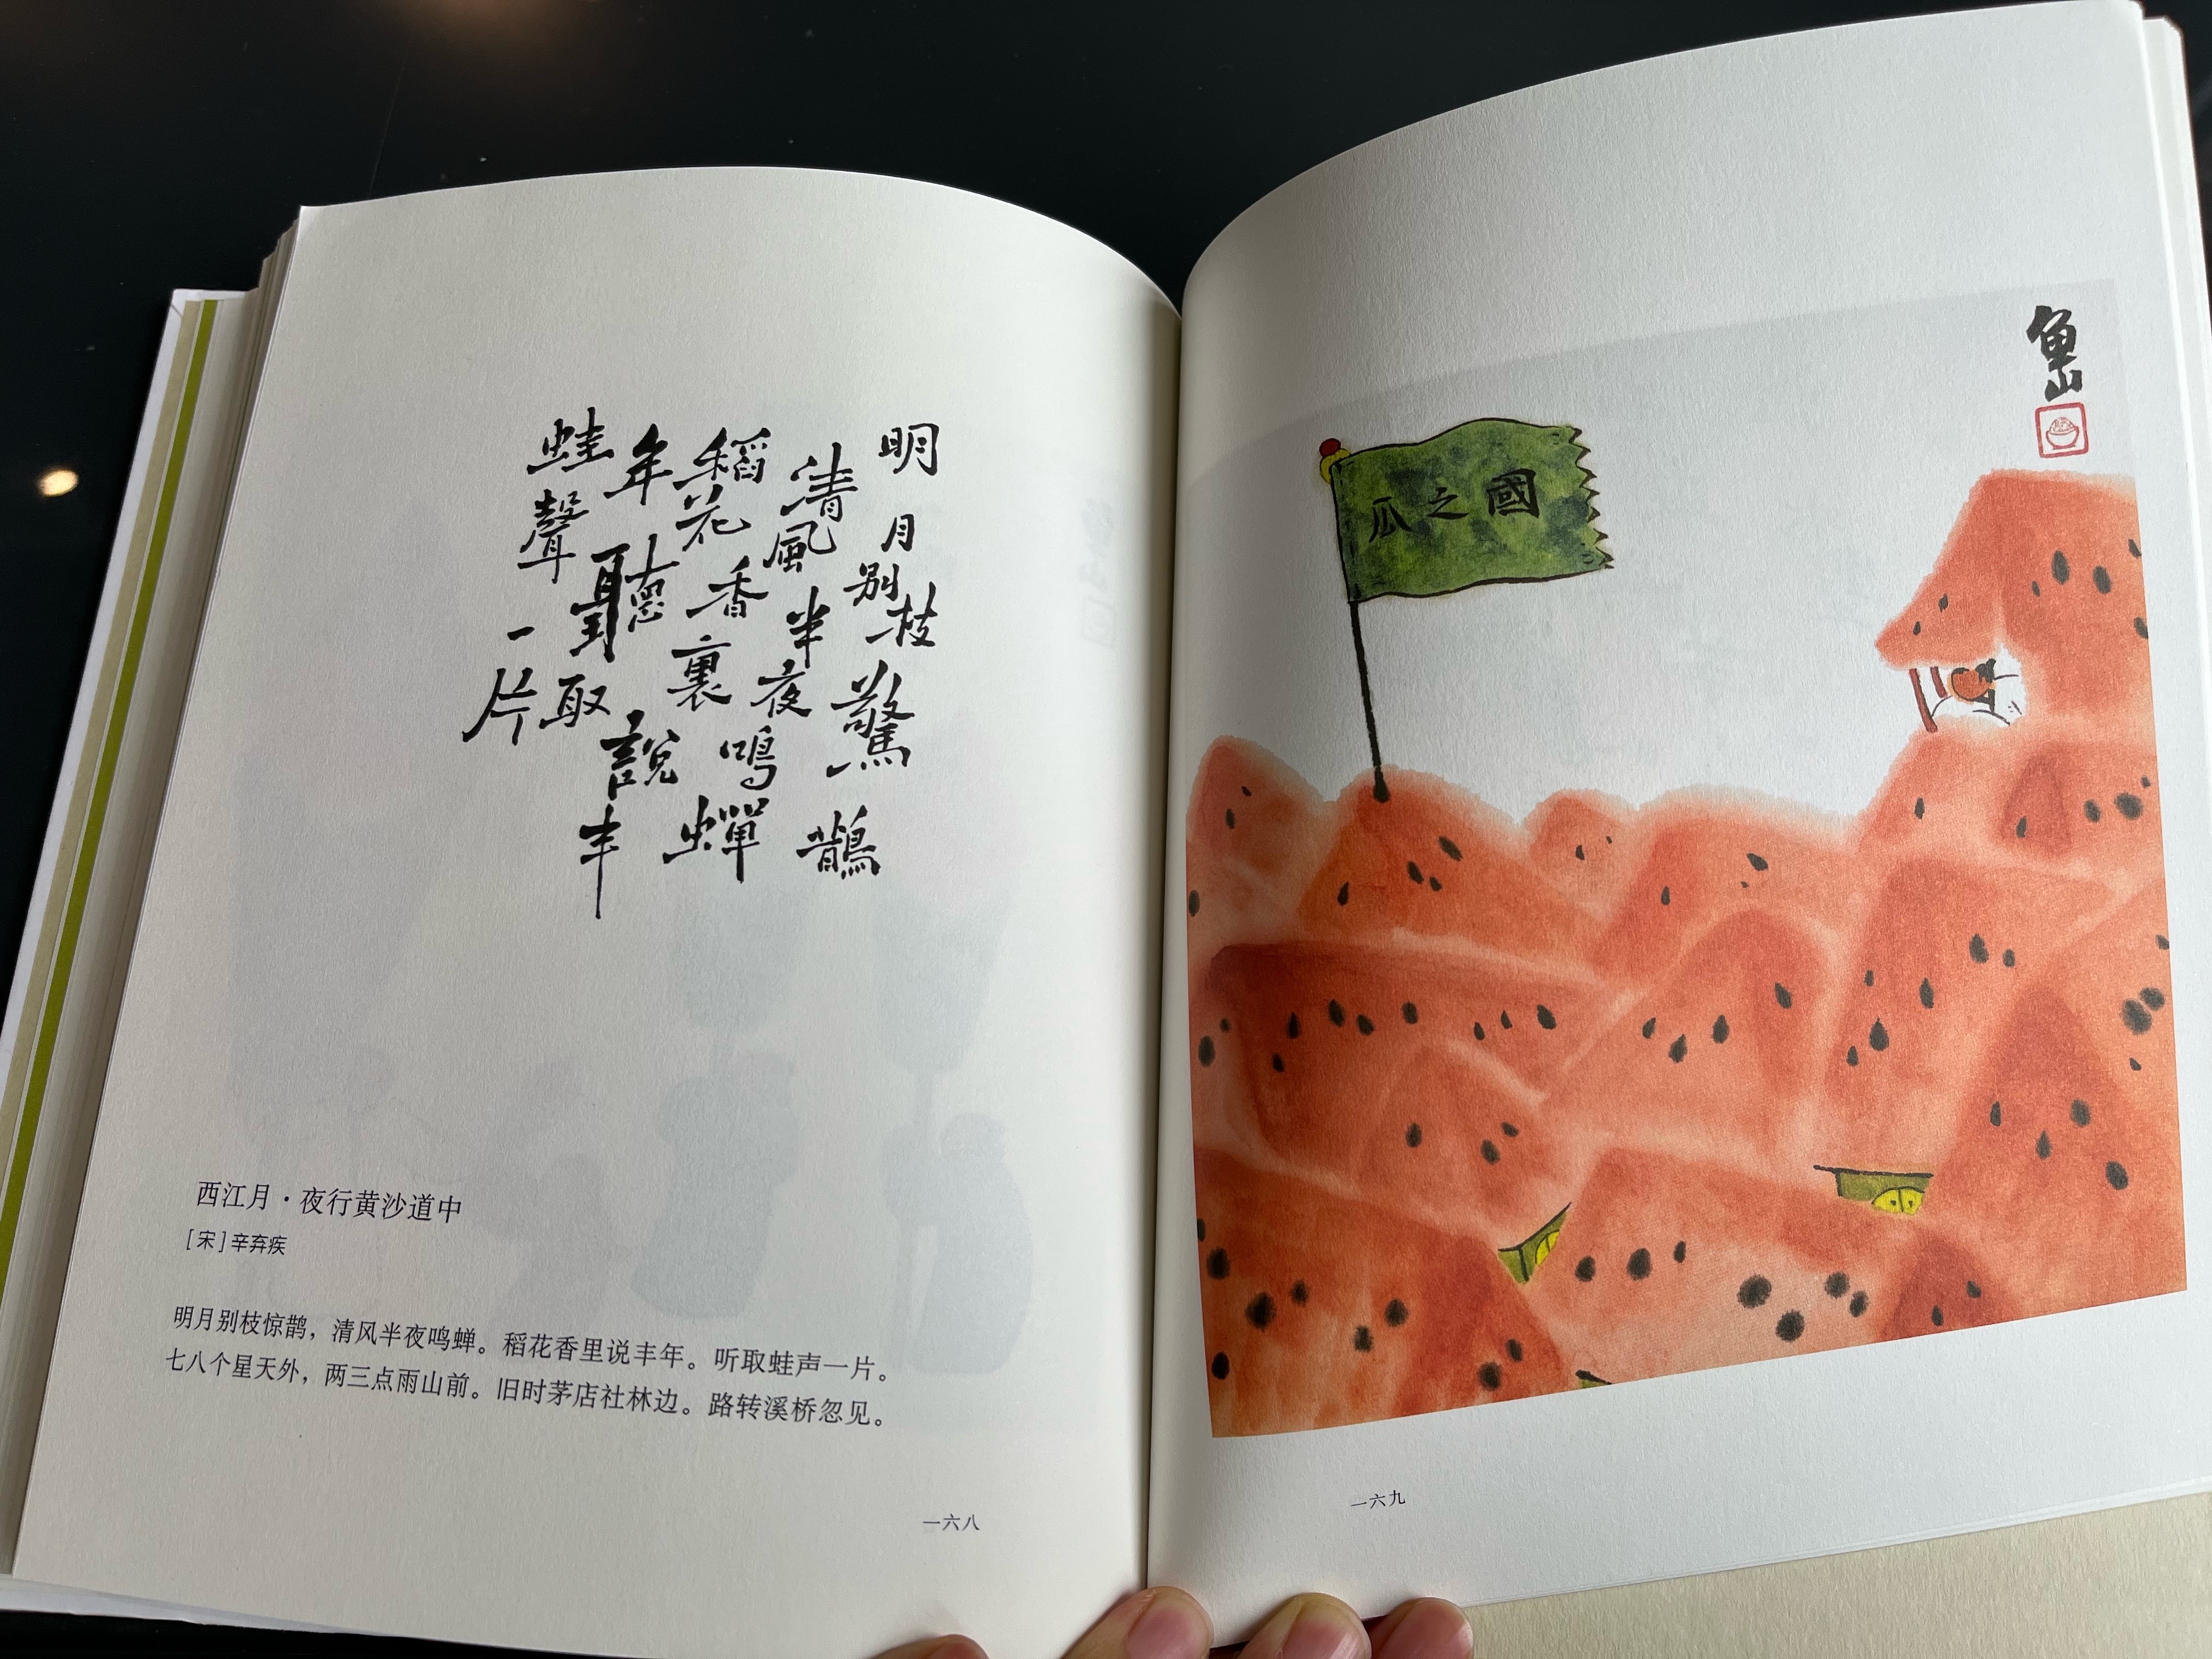 明月别枝驚鵲
清風半夜鳴蟬
稻花香裏說丰
年聽取
蛙聲一片
西江月·夜行黄沙道中
［宋］辛弃疾
明月别枝惊鹊，清风半夜鸣蝉。稻花香里说丰年。听取蛙声一片。
七八个星天外，两三点雨山前。旧时茅店社林边。路转溪桥忽见。
一六八
鱼山
瓜之國
一六九